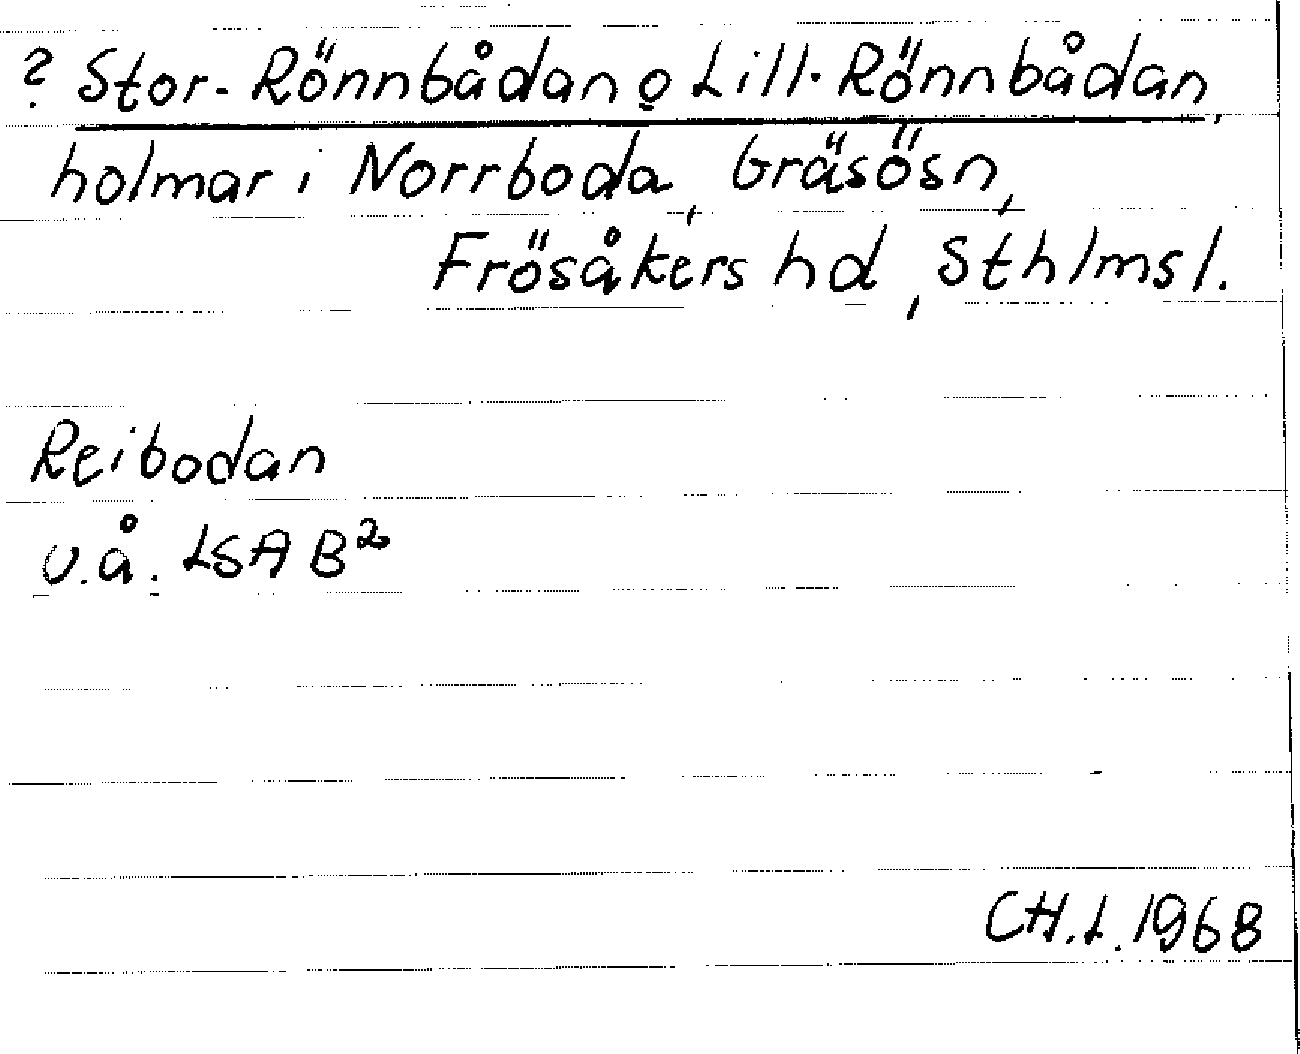 ? Stor-Rönnbådan o Lill-Rönnbådan,
holmar i Norrboda, Gräsösn,
Frösåkers hd, Sthlms l.
Reibodan
u.å. LSA B²
CH.L. 1968